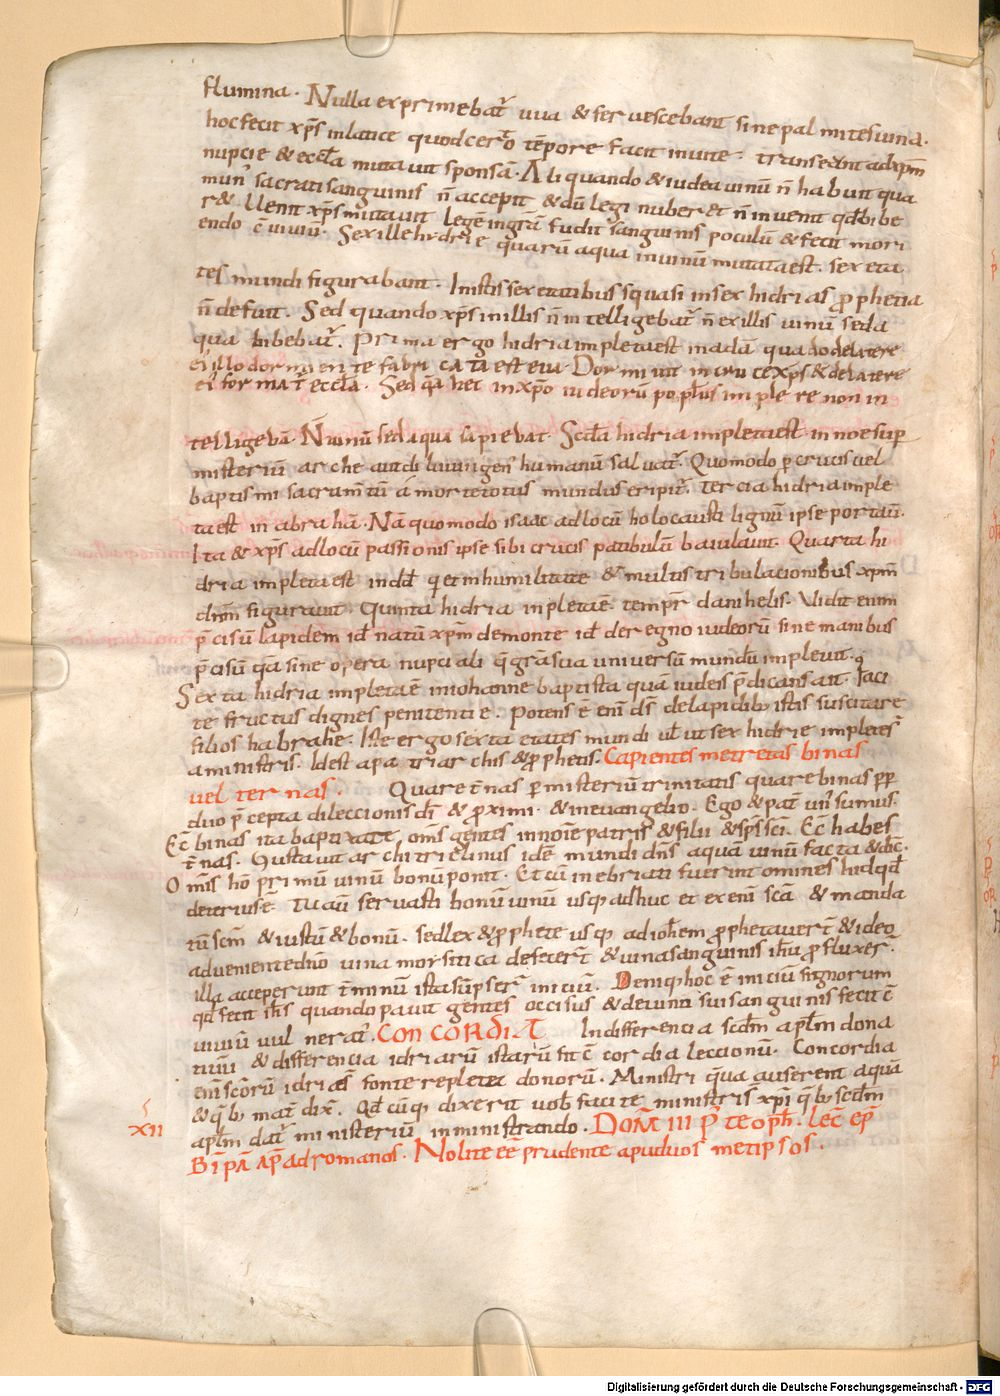 flumina. Nulla exprimebat᷑ uua & feruescebant sine palmite suina.
hoc fecit xp̅s in latice quod certo te̅pore facit in uite. transeunt ad xp̅m
nupcie & eccl̅a mutauit sponsa̅. Aliquando & iudea uinu̅ n̅ habuit qua
mun᷑ sacrati sanguinis n̅ accepit & du̅ legi nuberet n̅ inuenit qđ bibe
r&. Uenit xp̅s mutauit lege̅ in gr̅am fudit sanguinis poculu̅ & fecit mori
endo c̅uiuiu̅. Sex ille hydrie quaru̅ aqua in uinu̅ mutata est. sex eta
tes mundi figurabant. In istis sex etatibus quasi in sex hidrias prophetia
n̅ defuit. Sed quando xp̅s in illis n̅ intelligebat᷑ n̅ ex illis uinu̅ sed a
qua bibebat᷑. Prima ergo hidria impleta est in ada̅ quando de latere
ei᷒ illo dormiente fabricata est eua. Dormiuit in cruce xp̅s & de latere
ei᷒ format᷑ eccl̅a. Sed q̅a hec in xp̅o iudeoru̅ popl̅us implere non in
telligeba̅. N̅ uinu̅ sed aqua sapiebat. Scd̅a hidria impleta est in noe sup̱
misteriu̅ arche diluuii gen᷒ humanu̅ saluat᷑. Quomodo p̱ crucis uel
baptismi sacram̅tu̅ a morte totus mundus eripit᷑. Tercia hidria imple
ta est in abraha̅. Na̅ quomodo isaac ad locu̅ holocausti lignu̅ ipse portau᷑.
Ita & xp̅s ad locu̅ passionis ipse sibi crucis patibulu̅ baiulauit. Quarta hi
dria impleta est in dd̅ qui et in humilitate & multis tribulacionibus xp̅m
dn̅m figurauit. Quinta hidria inpleta e̅ tempr᷑ danihelis. Uidit enim
p̅cisu̅ lapidem id̅ natu̅ xp̅m de monte id̅ de regno iudeoru̅ sine manibus
p̅cisu̅ q̅a sine opera nupciali q̅ gr̅a sua uniuersu̅ mundu̅ impleuit.
Sexta hidria impleta e̅ in iohanne baptista qua̅ iudeis p̅dicans ait. faci
te fructus dignes penitentie. Potens e̅ eni̅ ds̅ de lapidib; istis suscitare
filios habrahe. Iste ergo sexta etates mundi ul̅ ut sex hidrie implet̅e s̅
a ministris. Id est a patriarchis & prophetis. Capientes metretas binas
uel ternas. Quare t̅nas p̱ misteriu̅ trinitatis quare binas p̱p̱
duo p̅cepta dileccionis di̅ & proximi. & in euangelio. Ego & pat᷑ unu̅ sumus.
Ec̅ binas ita baptizate om̅s gentes in noi̅e patris & filii & sp̅s sc̅i. Ec̅ habes
t̅nas. Gustauit architriclinus ide̅ mundi dn̅s aqua̅ uinu̅ facta & dic̅.
Om̅is ho̅ primu̅ uinu̅ bonu̅ ponit. Et cu̅ inebriati fuerint omines hid qđ
deterius e̅. Tu au̅ seruasti bonu̅ uinu̅ usq; adhuc et ex eni̅ sc̅a & manda
tu̅ sc̅m & iustu̅ & bonu̅. sed lex & prophete usq; ad ioh̅em prophetauer̅t & ideo
adueniente dn̅o uina morsitica defecer̅t & uina sanguinis ih̅u profluxer᷑.
illa acceperunt t̅minu̅ ista su̅pser̅ iniciu̅. Deniq; hoc e̅ iniciu̅ signorum
qđ fecit ih̅s quando pauit gentes occisus & de iuncti sui sanguinis fecit c̅
uiuiu̅ uulnerat᷑. CONCORDIA Indifferencia scd̅m apl̅m dona
tiui & differencia idriaru̅ istaru̅ fit c̅cordia leccionu̅. Concordia
eni̅ sc̅oru̅ idrias fonte replet donoru̅. Ministri q̅ua auferent aqua̅
& q̅b; mat᷑ dix̅. Qđcu̅q; dixerit uob̅ facite ministris xp̅i q̅b; scd̅m
apl̅m dat᷑ ministeriu̅ in ministrando. DOM̅ III P̅ TEOPH̅. LEC̅ EP̅
XII
B̅I PA̅ AP̅ ad romanos. Nolite e̅e prudente apud uos metipsos.
Digitalisierung gefördert durch die Deutsche Forschungsgemeinschaft - DFG